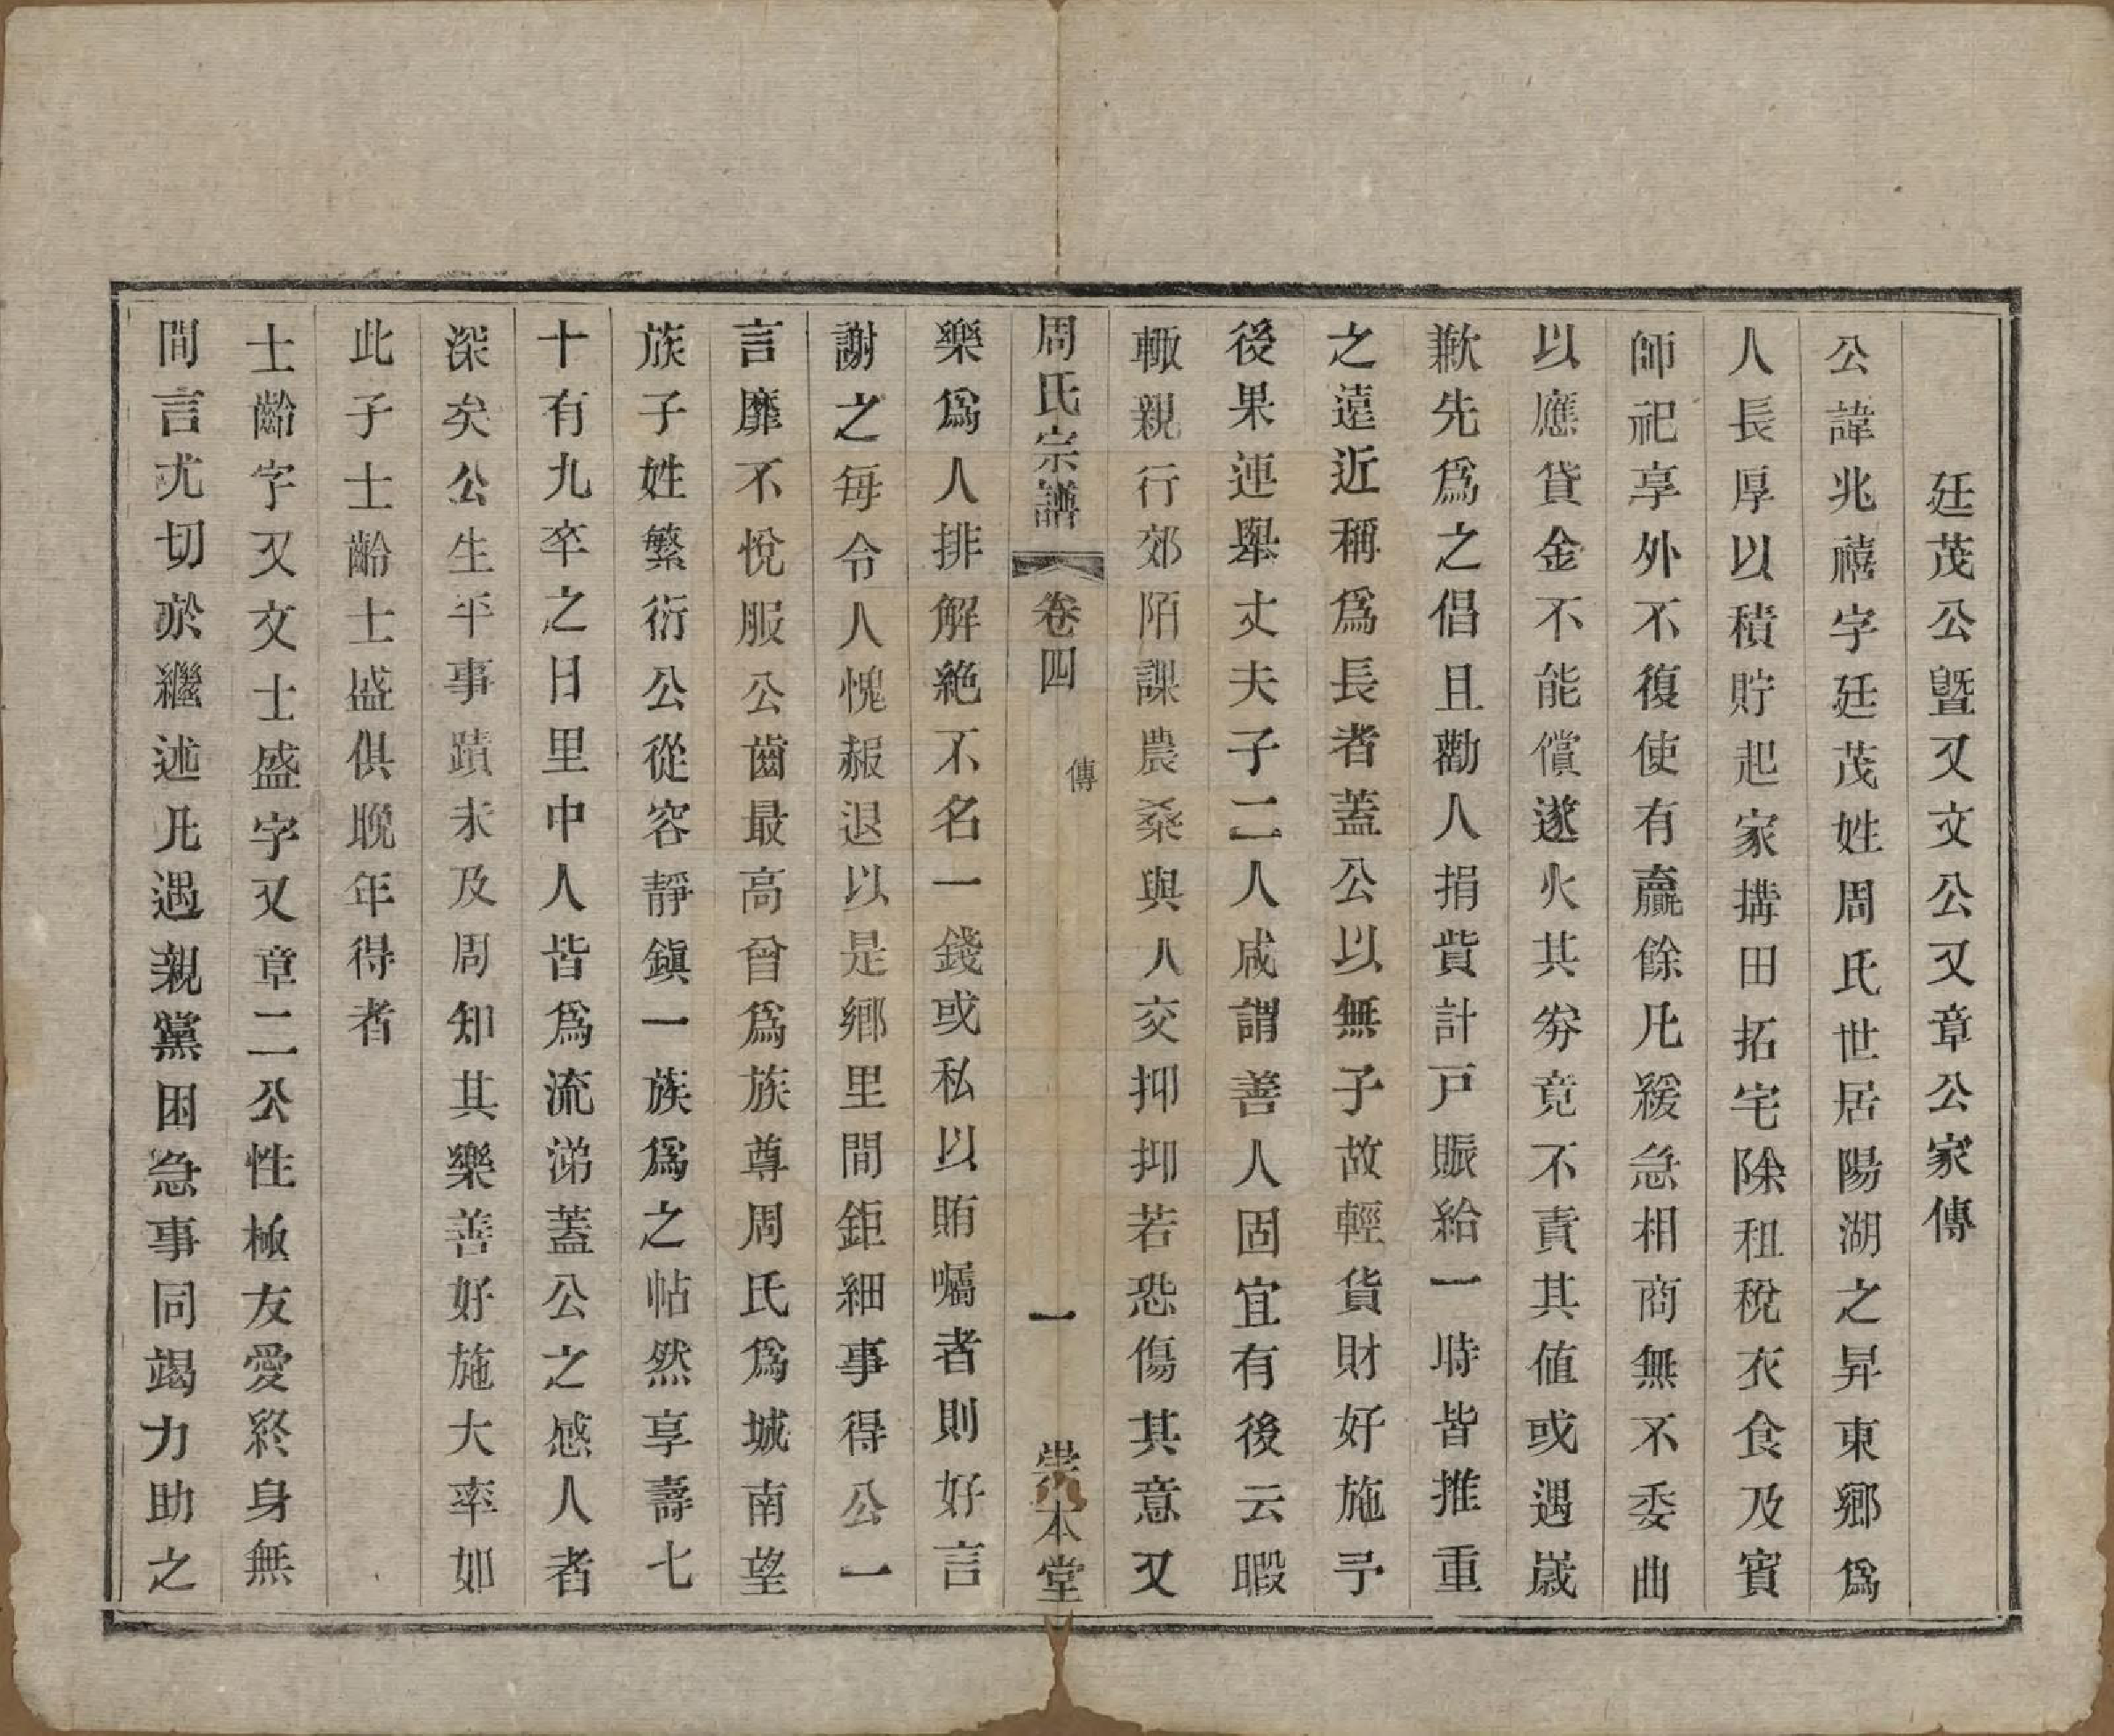 廷茂公曁又文公又章公家傳
公諱兆禧字廷茂姓周氏世居陽湖之昇東鄉爲
人長厚以積貯起家搆田拓宅除租稅衣食及賓
師祀享外不復使有贏餘凡緩急相商無不委曲
以應貸金不能償遂火其券竟不責其値或遇歲
歉先爲之倡且勸人捐貲計戸賑給一時皆推重
之遠近稱爲長者蓋公以無子故輕貨財好施予
後果連舉丈夫子二人咸謂善人固宜有後云暇
輙親行郊陌課農桑與人交抑抑若恐傷其意又
周氏宗譜
卷四
傳
一
崇本堂
樂爲人排解絶不名一錢或私以賄囑者則好言
謝之毎令人愧赧退以是鄉里間鉅細事得公一
言靡不悅服公齒最高曾爲族尊周氏爲城南望
族子姓繁衍公從容靜鎭一族爲之帖然享壽七
十有九卒之日里中人皆爲流涕蓋公之感人者
深矣公生平事蹟未及周知其樂善好施大率如
此子士齡士盛俱晚年得者
士齡字又文士盛字又章二公性極友愛終身無
間言尤切於繼述凡遇親黨困急事同竭力助之